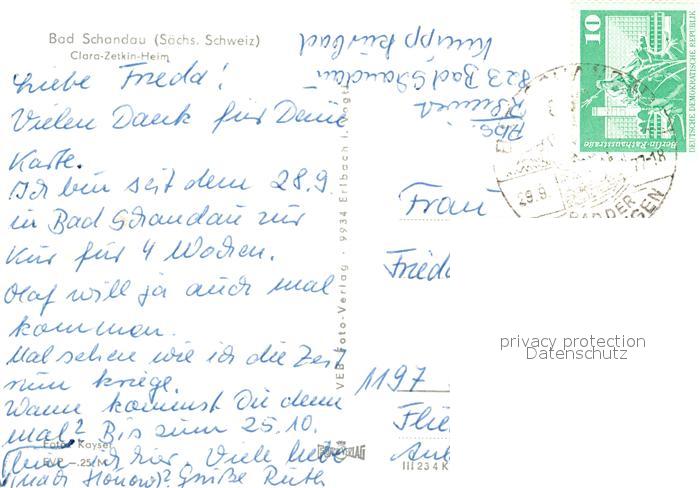 Bad Schandau (Sächs. Schweiz)
Clara-Zetkin-Heim
Liebe Frieda!
Vielen Dank für Deine
Karte.
Ich bin seit dem 28.9.
in Bad Schandau zur
Kur für 4 Wochen.
Olaf will ja auch mal
kommen.
Mal sehen wie ich die Zeit
rum kriege.
Wann kommst Du denn
mal? Bis zum 25.10.
bin ich hier. Viele liebe
(nach Hönow)? Grüße Ruth
Foto: Kayser
EVP -.25 M
VEB Foto-Verlag · 9934 Erlbach i. Vogtl.
III 23 4 K
Abs.
823 Bad Schandau
Kneippkurbad
10
DEUTSCHE DEMOKRATISCHE REPUBLIK
Berlin-Rathausstraße
29.9.77-18
BAD DER
Frau
Frieda
1197
privacy protection
Datenschutz